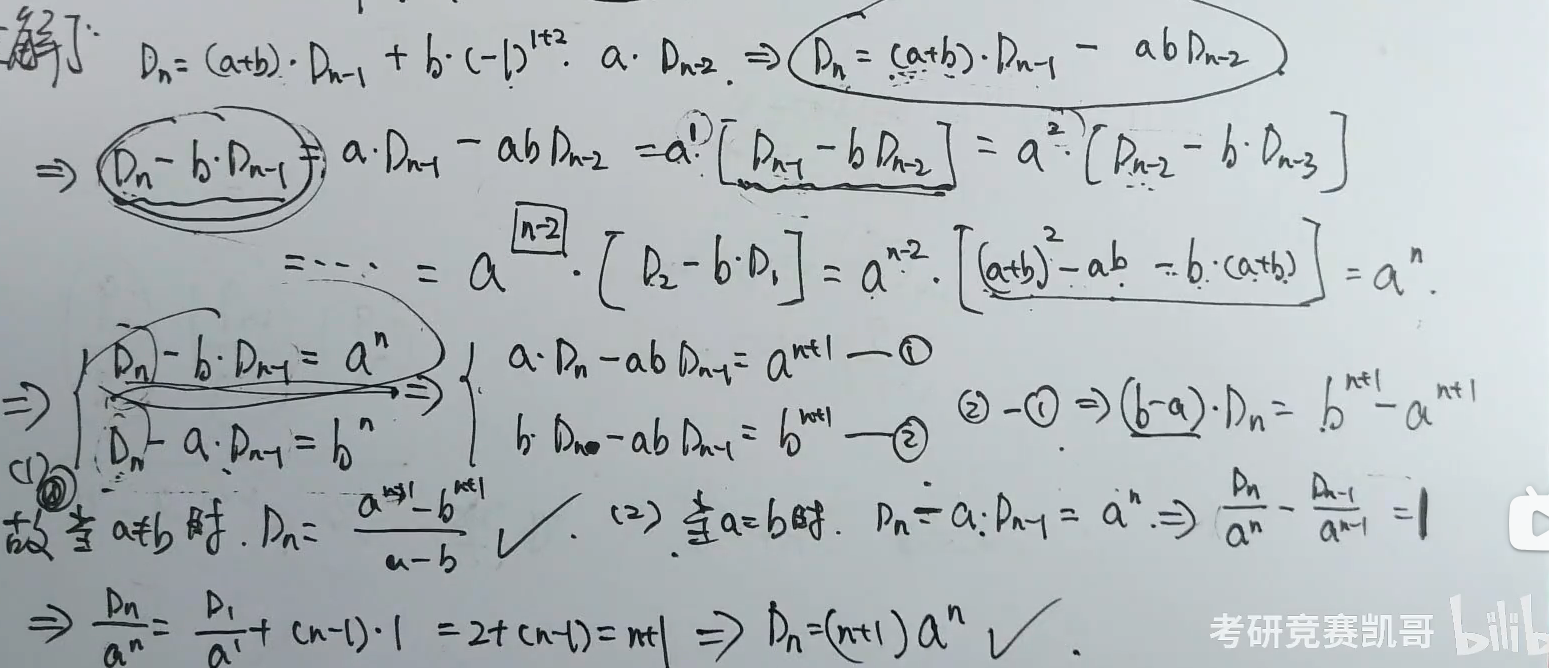 解:
Dn = (a+b)·Dn-1 + b·(-1)^{1+2}·a·Dn-2. ⇒ Dn = (a+b)·Dn-1 - abDn-2
⇒ Dn - b·Dn-1 = a·Dn-1 - abDn-2 = a^1·[Dn-1 - bDn-2] = a^2·[Dn-2 - b·Dn-3]
=···· = a^{n-2}·[D2 - b·D1] = a^{n-2}·[(a+b)^2 - ab - b·(a+b)] = a^n.
⇒ { Dn - b·Dn-1 = a^n ⇒ { a·Dn - abDn-1 = a^{n+1} —①
Dn - a·Dn-1 = b^n b·Dn - abDn-1 = b^{n+1} —② ②-① ⇒ (b-a)·Dn = b^{n+1} - a^{n+1}
(1) 故当a≠b时. Dn = \frac{a^{n+1}-b^{n+1}}{a-b} ✓. (2) 当a=b时. Dn - a·Dn-1 = a^n. ⇒ \frac{Dn}{a^n} - \frac{Dn-1}{a^{n-1}} = 1
⇒ \frac{Dn}{a^n} = \frac{D1}{a^1} + (n-1)·1 = 2+(n-1) = n+1 ⇒ Dn = (n+1)a^n ✓.
考研竞赛凯哥 bilib